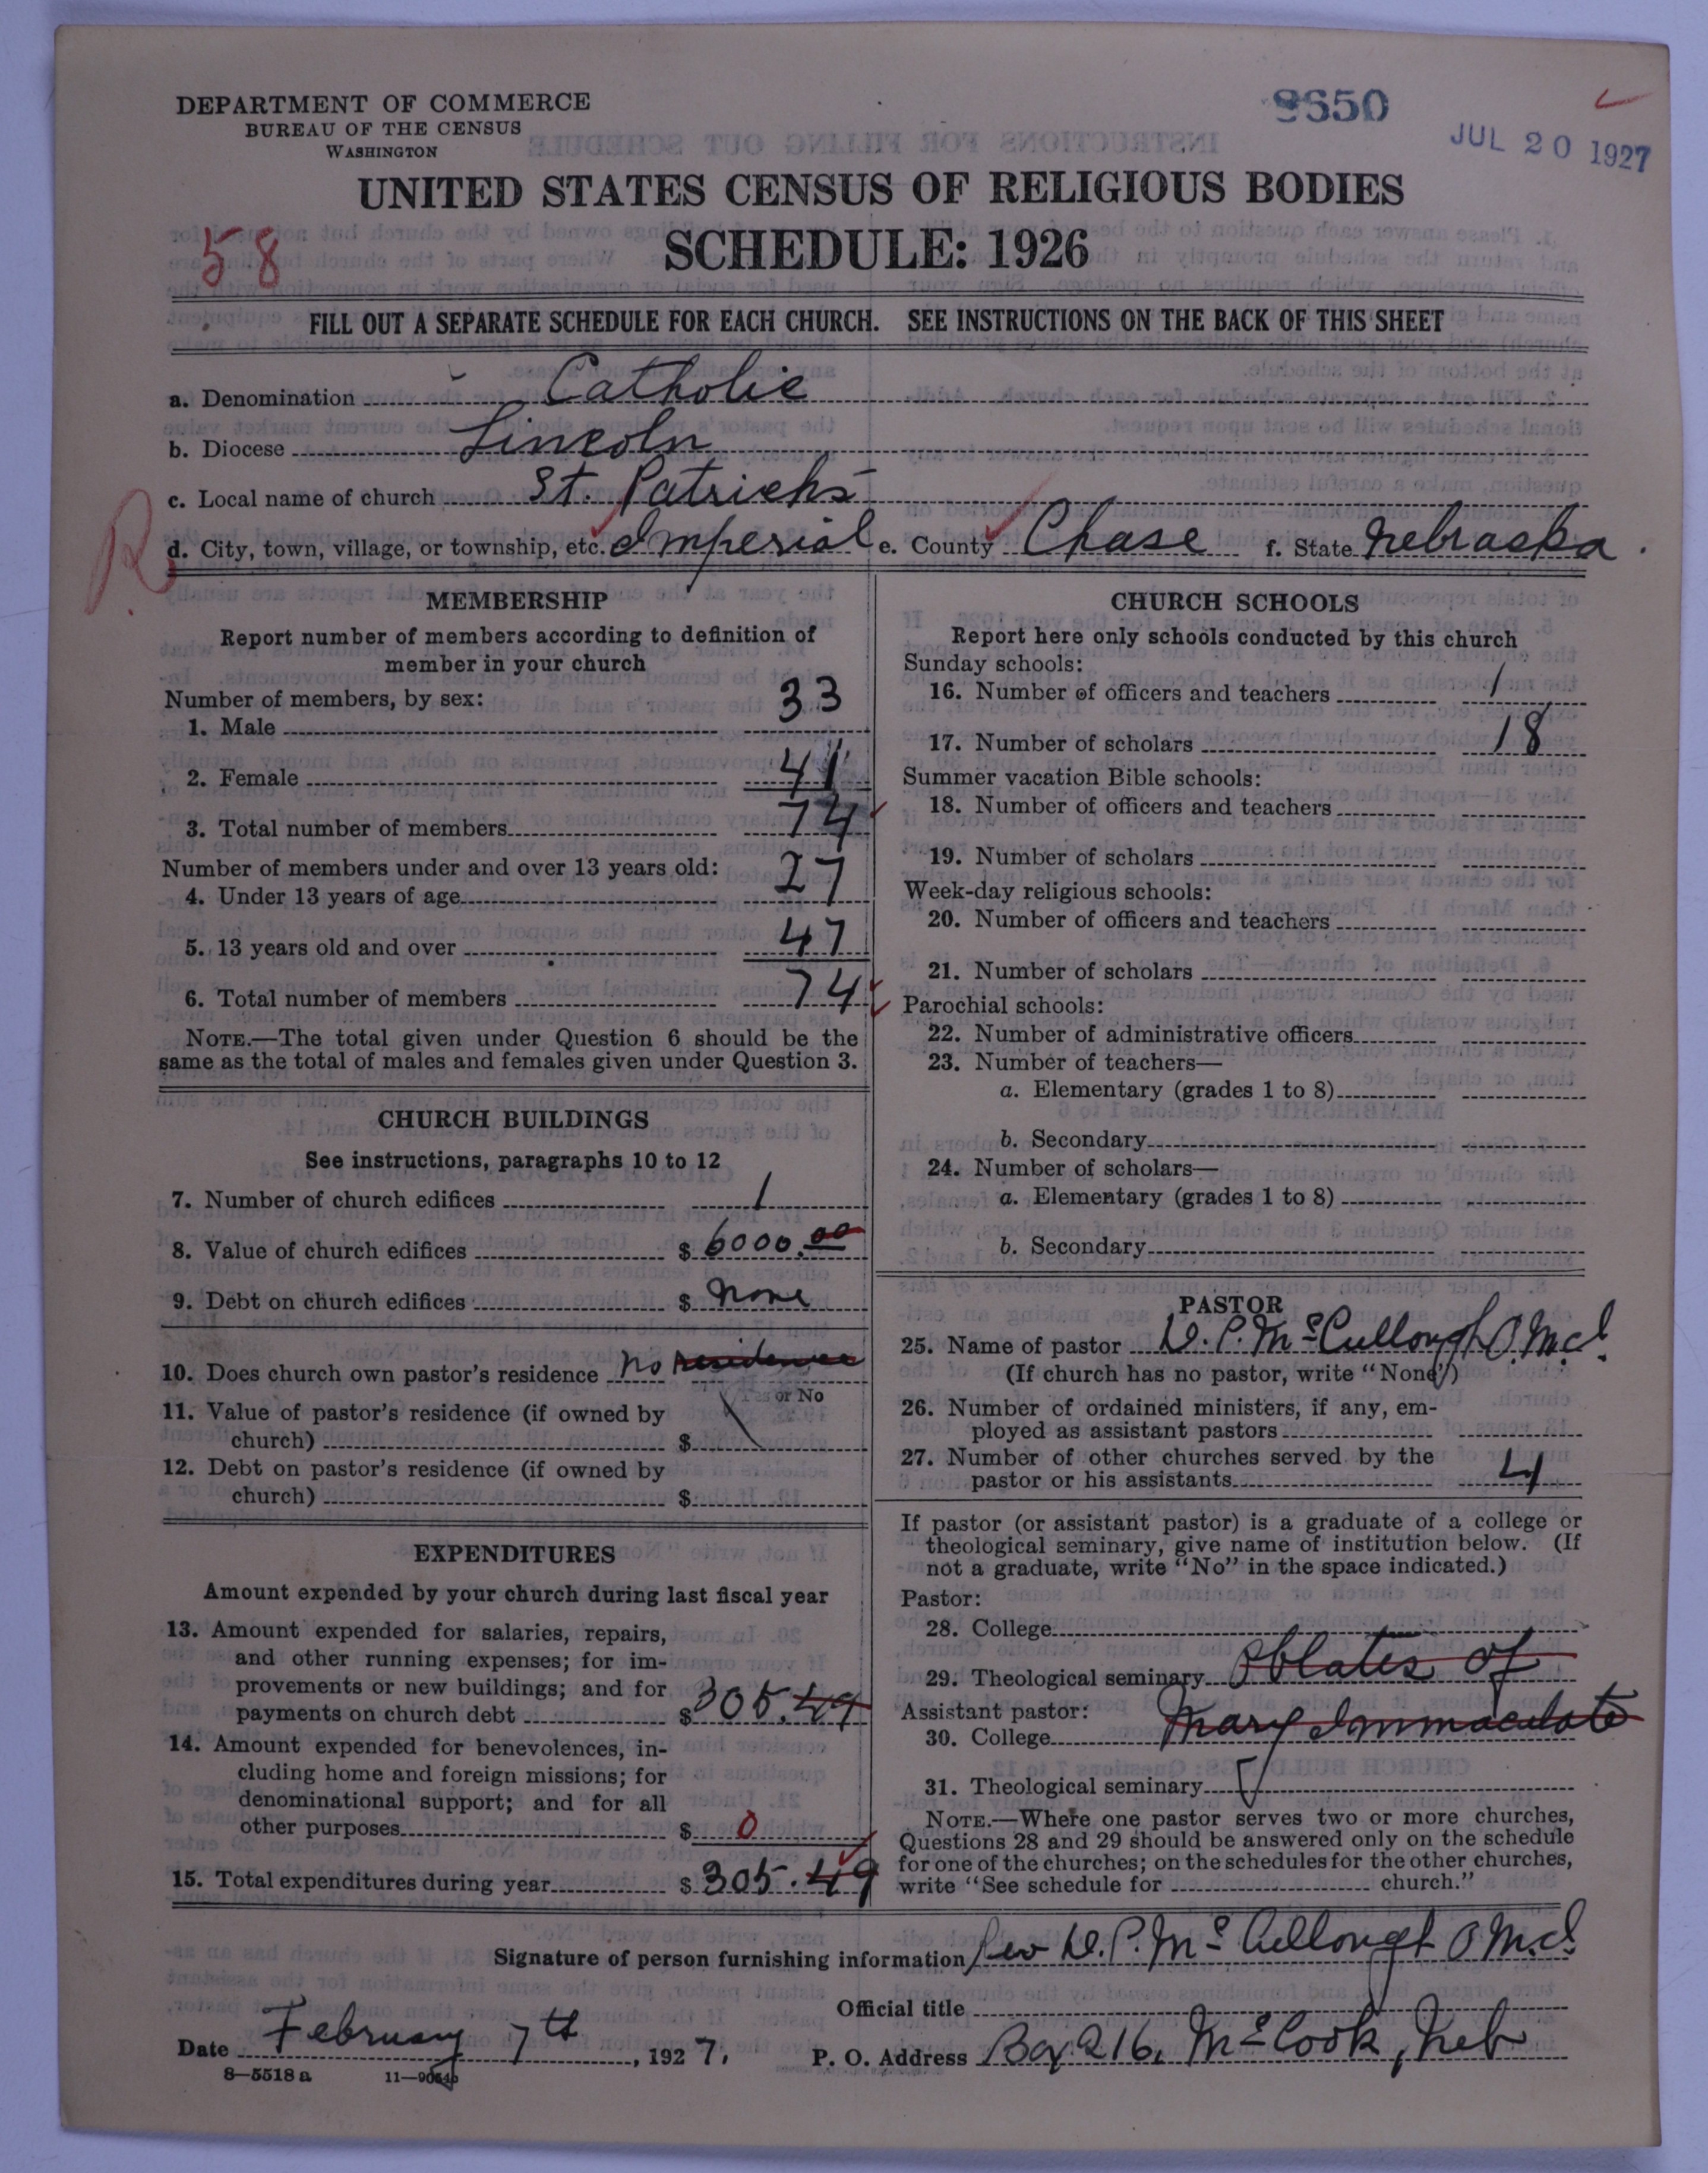 DEPARTMENT OF COMMERCE
BUREAU OF THE CENSUS
WASHINGTON
JUL 20 1927
UNITED STATES CENSUS OF RELIGIOUS BODIES
58
SCHEDULE: 1926
FILL OUT A SEPARATE SCHEDULE FOR EACH CHURCH. SEE INSTRUCTIONS ON THE BACK OF THIS SHEET
a. Denomination Catholic
b. Diocese Lincoln
c. Local name of church St. Patrick's
d. City, town, village, or township, etc. Imperial e. County Chase f. State Nebraska.
R
MEMBERSHIP
Report number of members according to definition of
member in your church
Number of members, by sex:
1. Male 33
2. Female 41
3. Total number of members 74
Number of members under and over 13 years old:
4. Under 13 years of age 27
5. 13 years old and over 47
6. Total number of members 74
NOTE.—The total given under Question 6 should be the
same as the total of males and females given under Question 3.
CHURCH BUILDINGS
See instructions, paragraphs 10 to 12
7. Number of church edifices 1
8. Value of church edifices $ 6000.00
9. Debt on church edifices $ None
10. Does church own pastor's residence No residence
or No
11. Value of pastor's residence (if owned by
church) $
12. Debt on pastor's residence (if owned by
church) $
EXPENDITURES
Amount expended by your church during last fiscal year
13. Amount expended for salaries, repairs,
and other running expenses; for im-
provements or new buildings; and for
payments on church debt $ 305.49
14. Amount expended for benevolences, in-
cluding home and foreign missions; for
denominational support; and for all
other purposes $ 0
15. Total expenditures during year $ 305.49
CHURCH SCHOOLS
Report here only schools conducted by this church
Sunday schools:
16. Number of officers and teachers 1
17. Number of scholars 18
Summer vacation Bible schools:
18. Number of officers and teachers
19. Number of scholars
Week-day religious schools:
20. Number of officers and teachers
21. Number of scholars
Parochial schools:
22. Number of administrative officers
23. Number of teachers—
a. Elementary (grades 1 to 8)
b. Secondary
24. Number of scholars—
a. Elementary (grades 1 to 8)
b. Secondary
PASTOR
25. Name of pastor D. P. McCullough O.M.I.
(If church has no pastor, write "None")
26. Number of ordained ministers, if any, em-
ployed as assistant pastors
27. Number of other churches served by the
pastor or his assistants 4
If pastor (or assistant pastor) is a graduate of a college or
theological seminary, give name of institution below. (If
not a graduate, write "No" in the space indicated.)
Pastor:
28. College
29. Theological seminary Oblates of
Assistant pastor: Mary Immaculate
30. College
31. Theological seminary
NOTE.—Where one pastor serves two or more churches,
Questions 28 and 29 should be answered only on the schedule
for one of the churches; on the schedules for the other churches,
write "See schedule for church."
Signature of person furnishing information Rev D. P. McCullough O.M.I.
Official title
Date February 7th, 1927. P. O. Address Box 216, McCook, Neb
8—5518 a